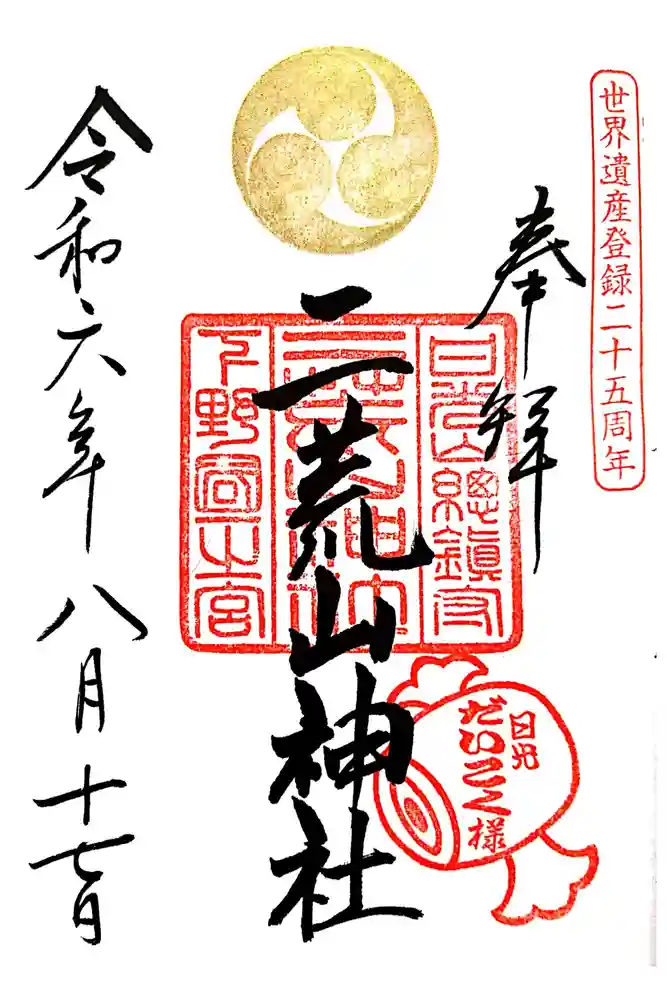 世界遺産登録二十五周年
奉拝
日光山總鎮守
二荒山神社
下野國一之宮
日光
だいこく様
令和六年
八月十七日